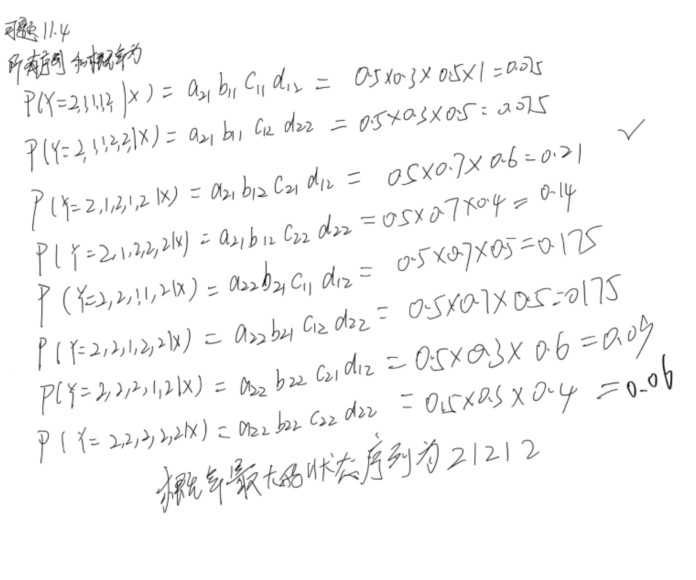 习题 11.4
所有序列和概率为
P(Y=2,1,1,1,2|X) = a21 b11 c11 d12 = 0.5×0.3×0.5×1=0.075
P(Y=2,1,1,2,2|X) = a21 b11 c12 d22 = 0.5×0.3×0.5=0.075
P(Y=2,1,2,1,2|X) = a21 b12 c21 d12 = 0.5×0.7×0.6=0.21 ✓
P(Y=2,1,2,2,2|X) = a21 b12 c22 d22 = 0.5×0.7×0.4=0.14
P(Y=2,2,1,1,2|X) = a22 b21 c11 d12 = 0.5×0.7×0.5=0.175
P(Y=2,2,1,2,2|X) = a22 b21 c12 d22 = 0.5×0.7×0.5=0.175
P(Y=2,2,2,1,2|X) = a22 b22 c21 d12 = 0.5×0.3×0.6=0.09
P(Y=2,2,2,2,2|X) = a22 b22 c22 d22 = 0.5×0.3×0.4=0.06
概率最大的状态序列为 21212